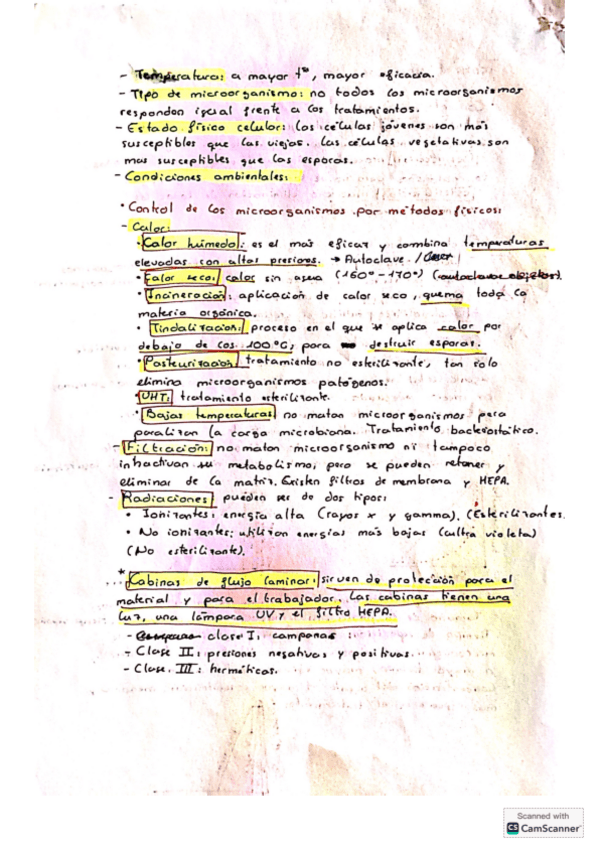 - Temperatura: a mayor tª, mayor eficacia.
- Tipo de microorganismo: no todos los microorganismos
responden igual frente a los tratamientos.
- Estado físico celular: las células jóvenes son más
susceptibles que las viejas. Las células vegetativas son
mas susceptibles que las esporas.
- Condiciones ambientales:
• Control de los microorganismos por métodos físicos:
- Calor:
• Calor húmedo: es el más eficaz y combina temperaturas
elevadas con altas presiones. → Autoclave /
• Calor seco: calor sin agua (160º-170º)
• Incineración: aplicación de calor seco, quema toda la
materia orgánica.
• Tindalización: proceso en el que se aplica calor por
debajo de los 100ºC, para destruir esporas.
• Pasteurización tratamiento no esterilizante, tan solo
elimina microorganismos patógenos.
• UHT: tratamiento esterilizante.
• Bajas temperaturas no matan microorganismos pero
paralizan la carga microbiana. Tratamiento bacteriostático.
- Filtración: no matan microorganismo ni tampoco
inhactivan su metabolismo, pero se pueden retener y
eliminar de la matriz. Existen filtros de membrana y HEPA.
- Radiaciones pueden ser de dos tipos:
• Ionizantes: energía alta (rayos x y gamma). (Esterilizantes.
• No ionizantes: utilizan energías más bajas (ultra violeta)
(No esterilizante).
* Cabinas de flujo laminar: sirven de protección para el
material y para el trabajador. Las cabinas tienen una
luz, una lámpara UV y el filtro HEPA.
- clase I: campanas :
- Clase II: presiones negativas y positivas.
- Clase III: herméticas.
Scanned with
CS CamScanner